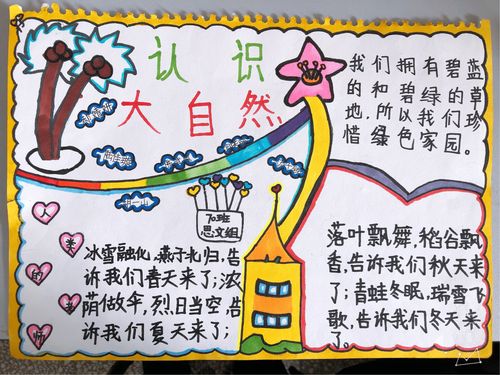 认识
大自然
我们拥有碧蓝
的和碧绿的草
地，所以我们珍
惜绿色家园。
70班
语文组
人
类
的
老
师
冰雪融化，燕子北归，告
诉我们春天来了；浓
荫做伞，烈日当空，告
诉我们夏天来了；
落叶飘舞，稻谷飘
香，告诉我们秋天来
了；青蛙冬眠，瑞雪飞
歌，告诉我们冬天来
了。